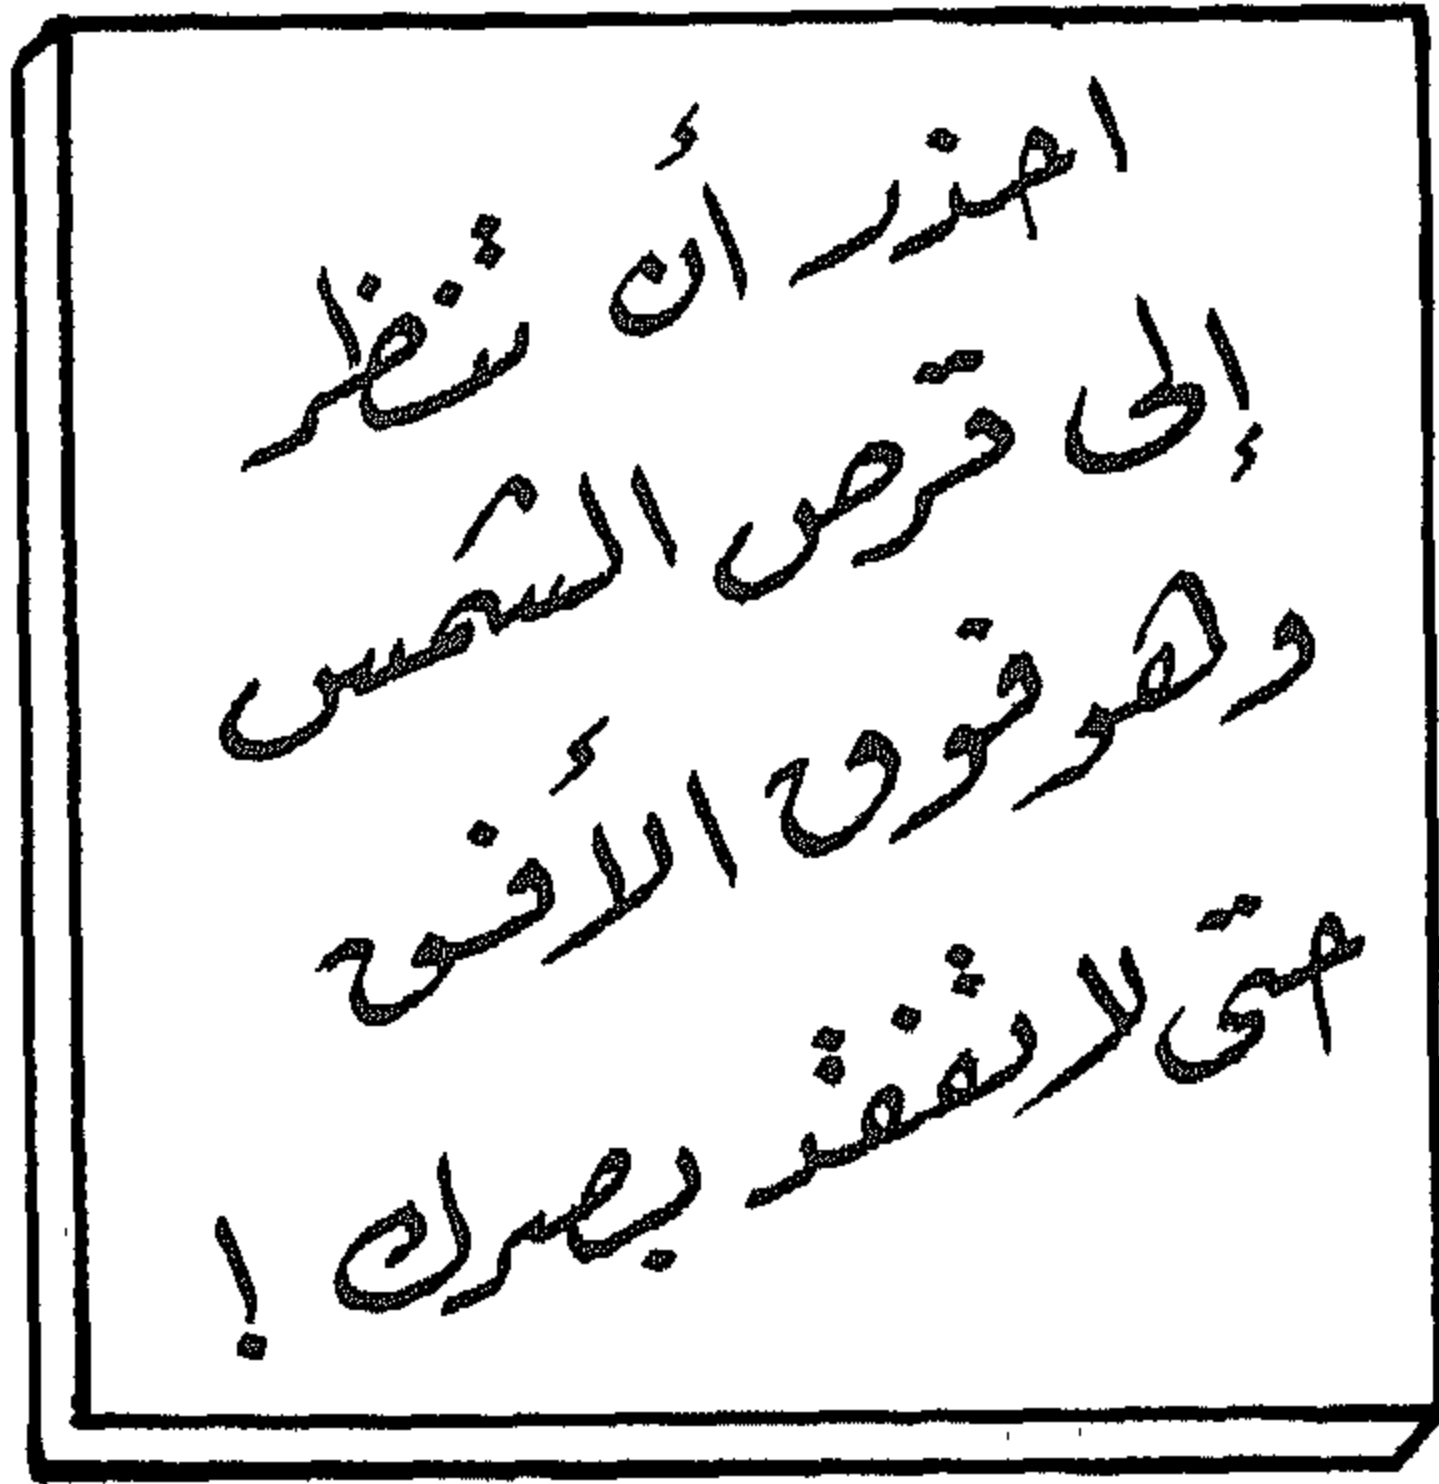 احذر أن تنظر
إلى قرص الشمس
وهو فوق الأفق
حتى لا تفقد بصرك !